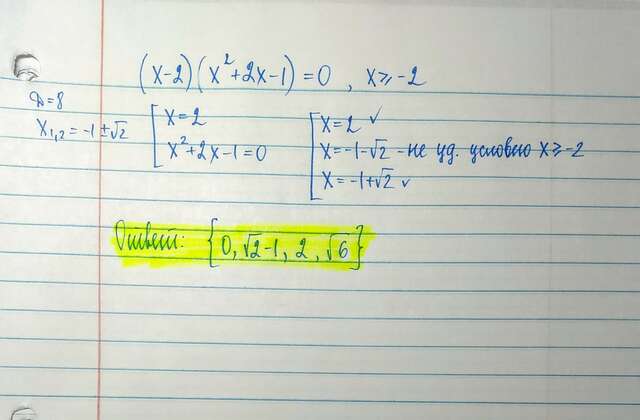 (x-2)(x²+2x-1)=0, x⩾-2
D=8
x₁,₂=-1±√2
[x=2
x²+2x-1=0
[x=2 ✓
x=-1-√2 - не уд. условию x⩾-2
x=-1+√2 ✓
Ответ: {0, √2-1, 2, √6}